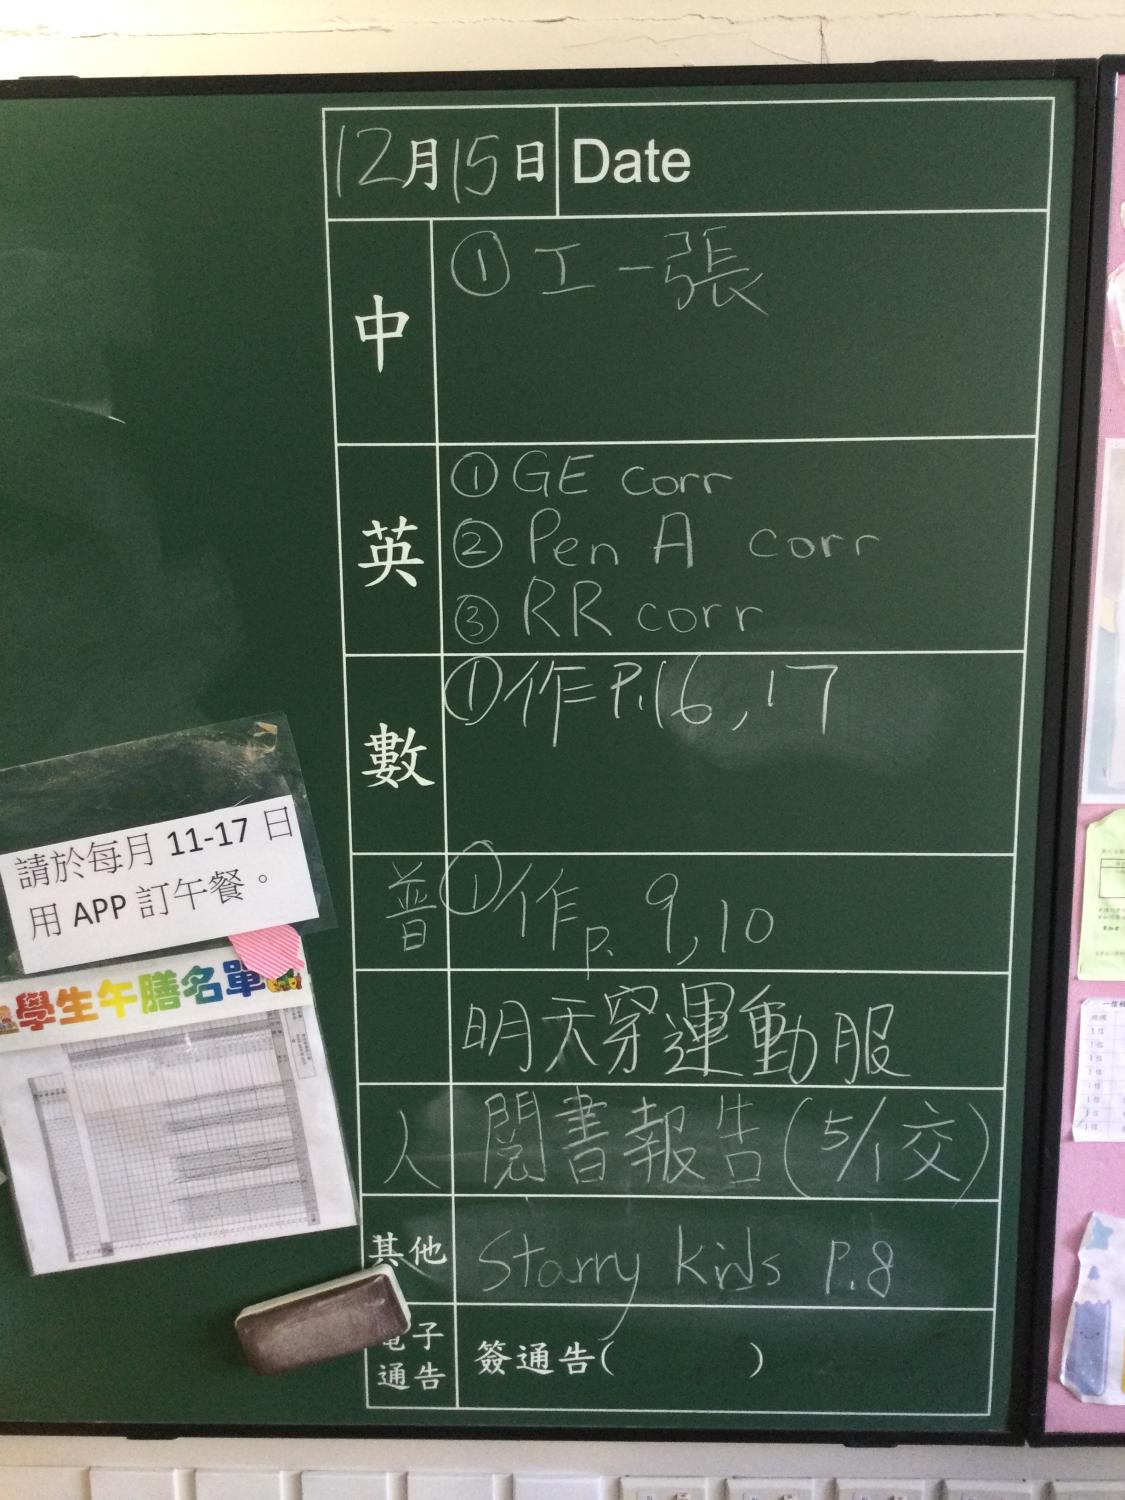 12月15日 Date
中 ① 工一張
英 ① GE corr
② Pen A corr
③ RR corr
數 ① 作 P.16, 17
普 ① 作 p. 9, 10
明天穿運動服
人 閱書報告(5/1交)
其他 Starry kids P.8
電子通告 簽通告( )
請於每月 11-17 日
用 APP 訂午餐。
學生午膳名單